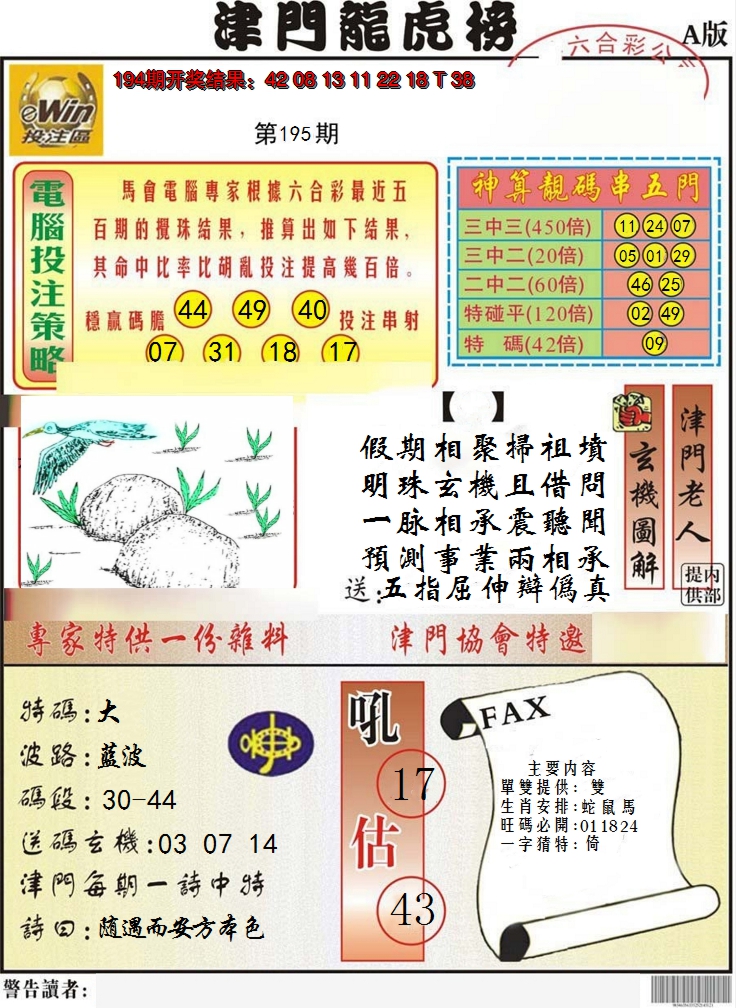 津門龍虎榜
A版
六合彩公
194期开奖结果：42 08 13 11 22 18 T 38
eWin
投注區
第195期
電腦投注策略
馬會電腦專家根據六合彩最近五
百期的攪珠结果，推算出如下结果，
其命中比率比胡亂投注提高幾百倍。
穩贏碼膽 44 49 40 投注串射
07 31 18 17
神算靚碼串五門
三中三(450倍) 11 24 07
三中二(20倍) 05 01 29
二中二(60倍) 46 25
特碰平(120倍) 02 49
特 碼(42倍) 09
【 】
假期相聚掃祖墳
明珠玄機且借問
一脉相承震聽聞
預測事業兩相承
送:五指屈伸辯僞真
玄機圖解
津門老人
内部提供
專家特供一份雜料
津門協會特邀
特碼:大
波路:藍波
碼段:30-44
送碼玄機:03 07 14
津門每期一詩中特
詩曰:隨遇而安方本色
吼
17
估
43
FAX
主要内容
單雙提供：雙
生肖安排:蛇鼠馬
旺碼必開:011824
一字猜特:倚
警告讀者: